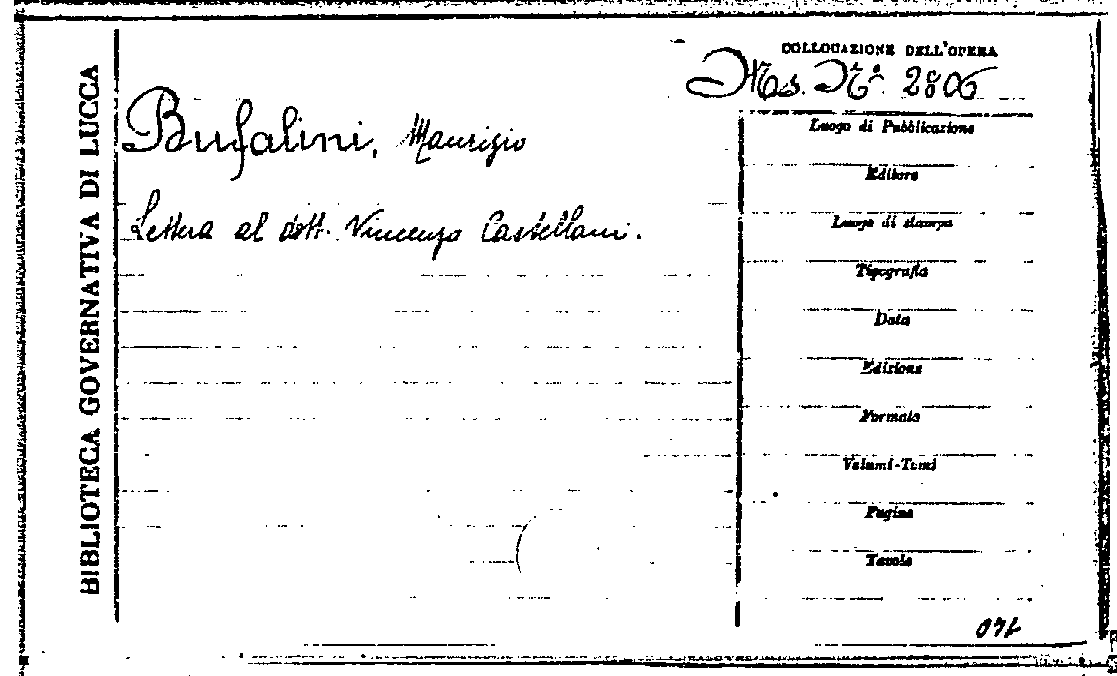 BIBLIOTECA GOVERNATIVA DI LUCCA
COLLOCAZIONE DELL'OPERA
Ms. N.º 2806
Bufalini, Maurizio
Lettera al dott. Vincenzo Castellani.
Luogo di Pubblicazione
Editore
Luogo di stampa
Tipografia
Data
Edizione
Formato
Volumi-Tomi
Pagine
Tavole